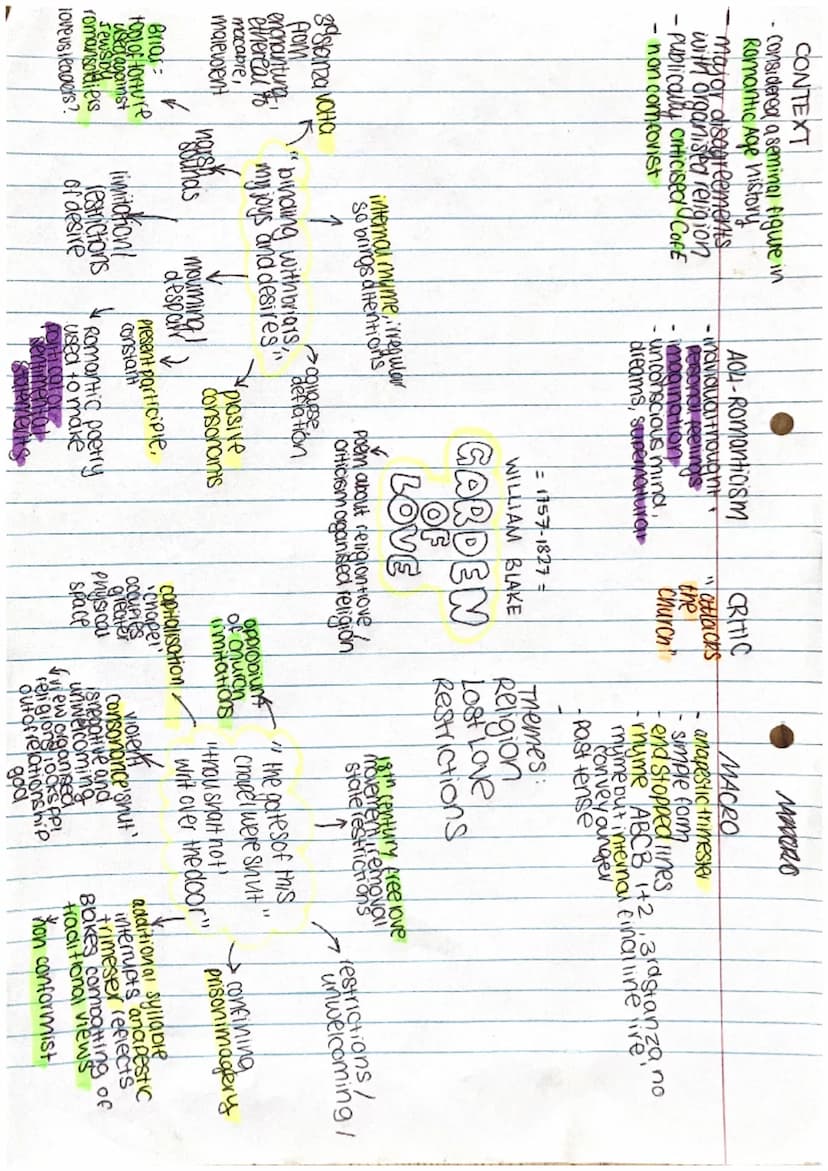 CONTEXT
- considered a seminal figure in
Romantic Age history
- major disagreements
with organised religion
- publically criticised CofE
- non comformist
AO4 - ROMANTICISM
- individual thought,
personal feelings
- imagination
- unconscious mind,
dreams, supernatural
CRITIC
"attacks
the
church"
MACRO
- anapestic trimester
- simple form
- end stopped lines
- rhyme ABCB 1+2, 3rd stanza, no
rhyme but internal
convey anger
- past tense
= 1757-1827 =
WILLIAM BLAKE
GARDEN
OF
LOVE
poem about religion + love /
criticism organised religion
Themes:
Religion
Lost Love
Restrictions
internal rhyme, irregular
so brings attentions
"binding with briars,
my joys and desires"
3rd stanza volta
from
enchanting,
ethereal to
macabre/
malevolent
harsh
sounds
Briar =
tool of torture
used against
Jews by
roman soldiers
limitation/
restrictions
of desire
mourning/
despair
present participle,
constant
Romantic poetry
used to make
political or
sentimental
statements
plosive
consonants
deflation
18th century free love
movement, removal
state restrictions
"the gates of this
chapel were shut"
"'thou shalt not'
writ over the door"
of church
limitations
capitalisation
'chapel'
occupies
greater
physical
space
violent
consonance 'shut'
is negative and
unwelcoming
view organised
religion blocks ppl
out of relationship
god
restrictions /
unwelcoming /
confining
prison imagery
additional syllable
interrupts anapestic
trimester reflects
Blakes combatting of
traditional views
non conformist